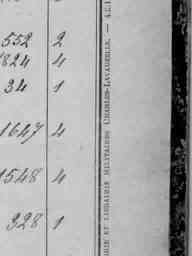 552 2
1824 4
34 1
1647 4
1548 4
328 1
MERIE ET LIBRAIRIE MILITAIRES CHARLES-LAVAUZELLE. — 4.2.1